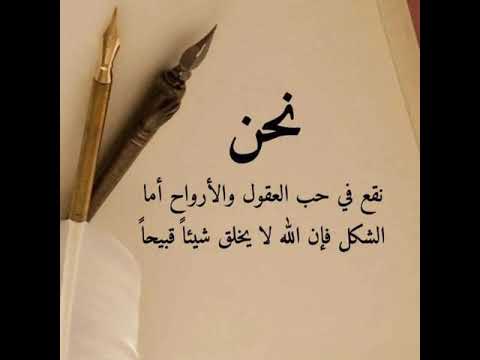 نحن
نقع في حب العقول والأرواح أما
الشكل فإن الله لا يخلق شيئاً قبيحاً